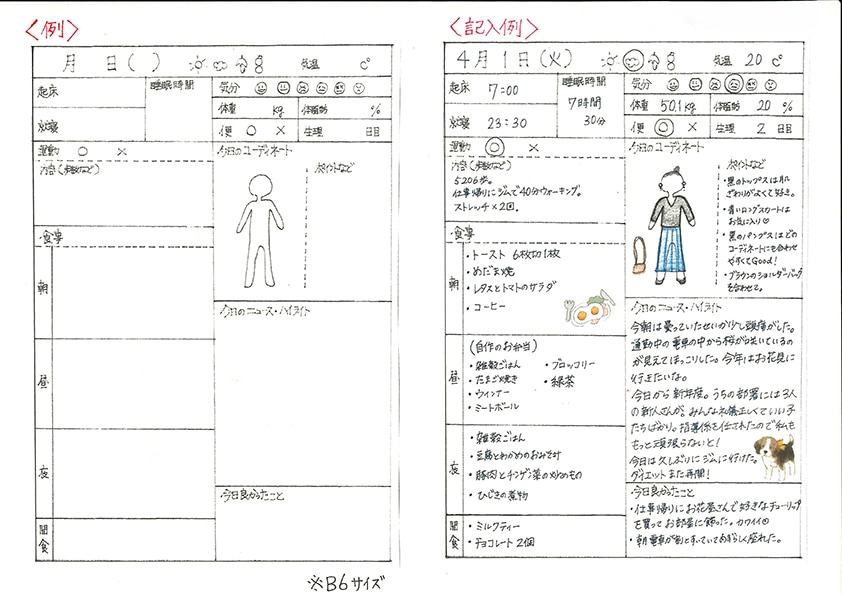 〈例〉
月 日( ) 気温 ℃
起床
睡眠時間
気分
体重 kg 体脂肪 %
就寝
便 ○ × 生理 日目
運動 ○ ×
内容(歩数など)
今日のコーディネート
ポイントなど
食事
朝
昼
夜
間食
今日のニュース・ハイライト
今日良かったこと
※B6サイズ
〈記入例〉
4月1日(火) 気温 20 ℃
起床 7:00
睡眠時間
7時間
30分
気分
体重 50.1kg 体脂肪 20 %
就寝 23:30
便 ◎ × 生理 2 日目
運動 ◎ ×
内容(歩数など)
5206歩。
仕事帰りにジムで40分ウォーキング。
ストレッチ×2回。
今日のコーディネート
ポイントなど
・黒のトップスは肌
ざわりがよくて好き。
・青いロングスカートは
お気に入り♡
・黒のパンプスはどの
コーディネートにも合わせ
やすくてGood!
・ブラウンのショルダーバッグ
を合わせて。
食事
朝
・トースト 6枚切1枚
・めだま焼
・レタスとトマトのサラダ
・コーヒー
昼
(自作のお弁当)
・雑穀ごはん
・たまご焼き
・ウィンナー
・ミートボール
・ブロッコリー
・緑茶
夜
・雑穀ごはん
・豆腐とわかめのおみそ汁
・豚肉とチンゲン菜の炒めもの
・ひじきの煮物
間食
・ミルクティー
・チョコレート2個
今日のニュース・ハイライト
今朝は曇っていたせいか少し頭痛がした。
通勤中の電車の中から桜が咲いているの
が見えてほっこりした。今年はお花見に
行きたいな。
今日から新年度。うちの部署には3人
の新人さんが。みんな礼儀正しくていい子
たちばかり。指導係を任されたので私も
もっと頑張らないと!
今日は久しぶりにジムに行けた。
ダイエットまた再開!
今日良かったこと
・仕事帰りにお花屋さんで好きなチューリップ
を買ってお部屋に飾った。カワイイ
・朝電車が割とすいていてめずらしく座れた。